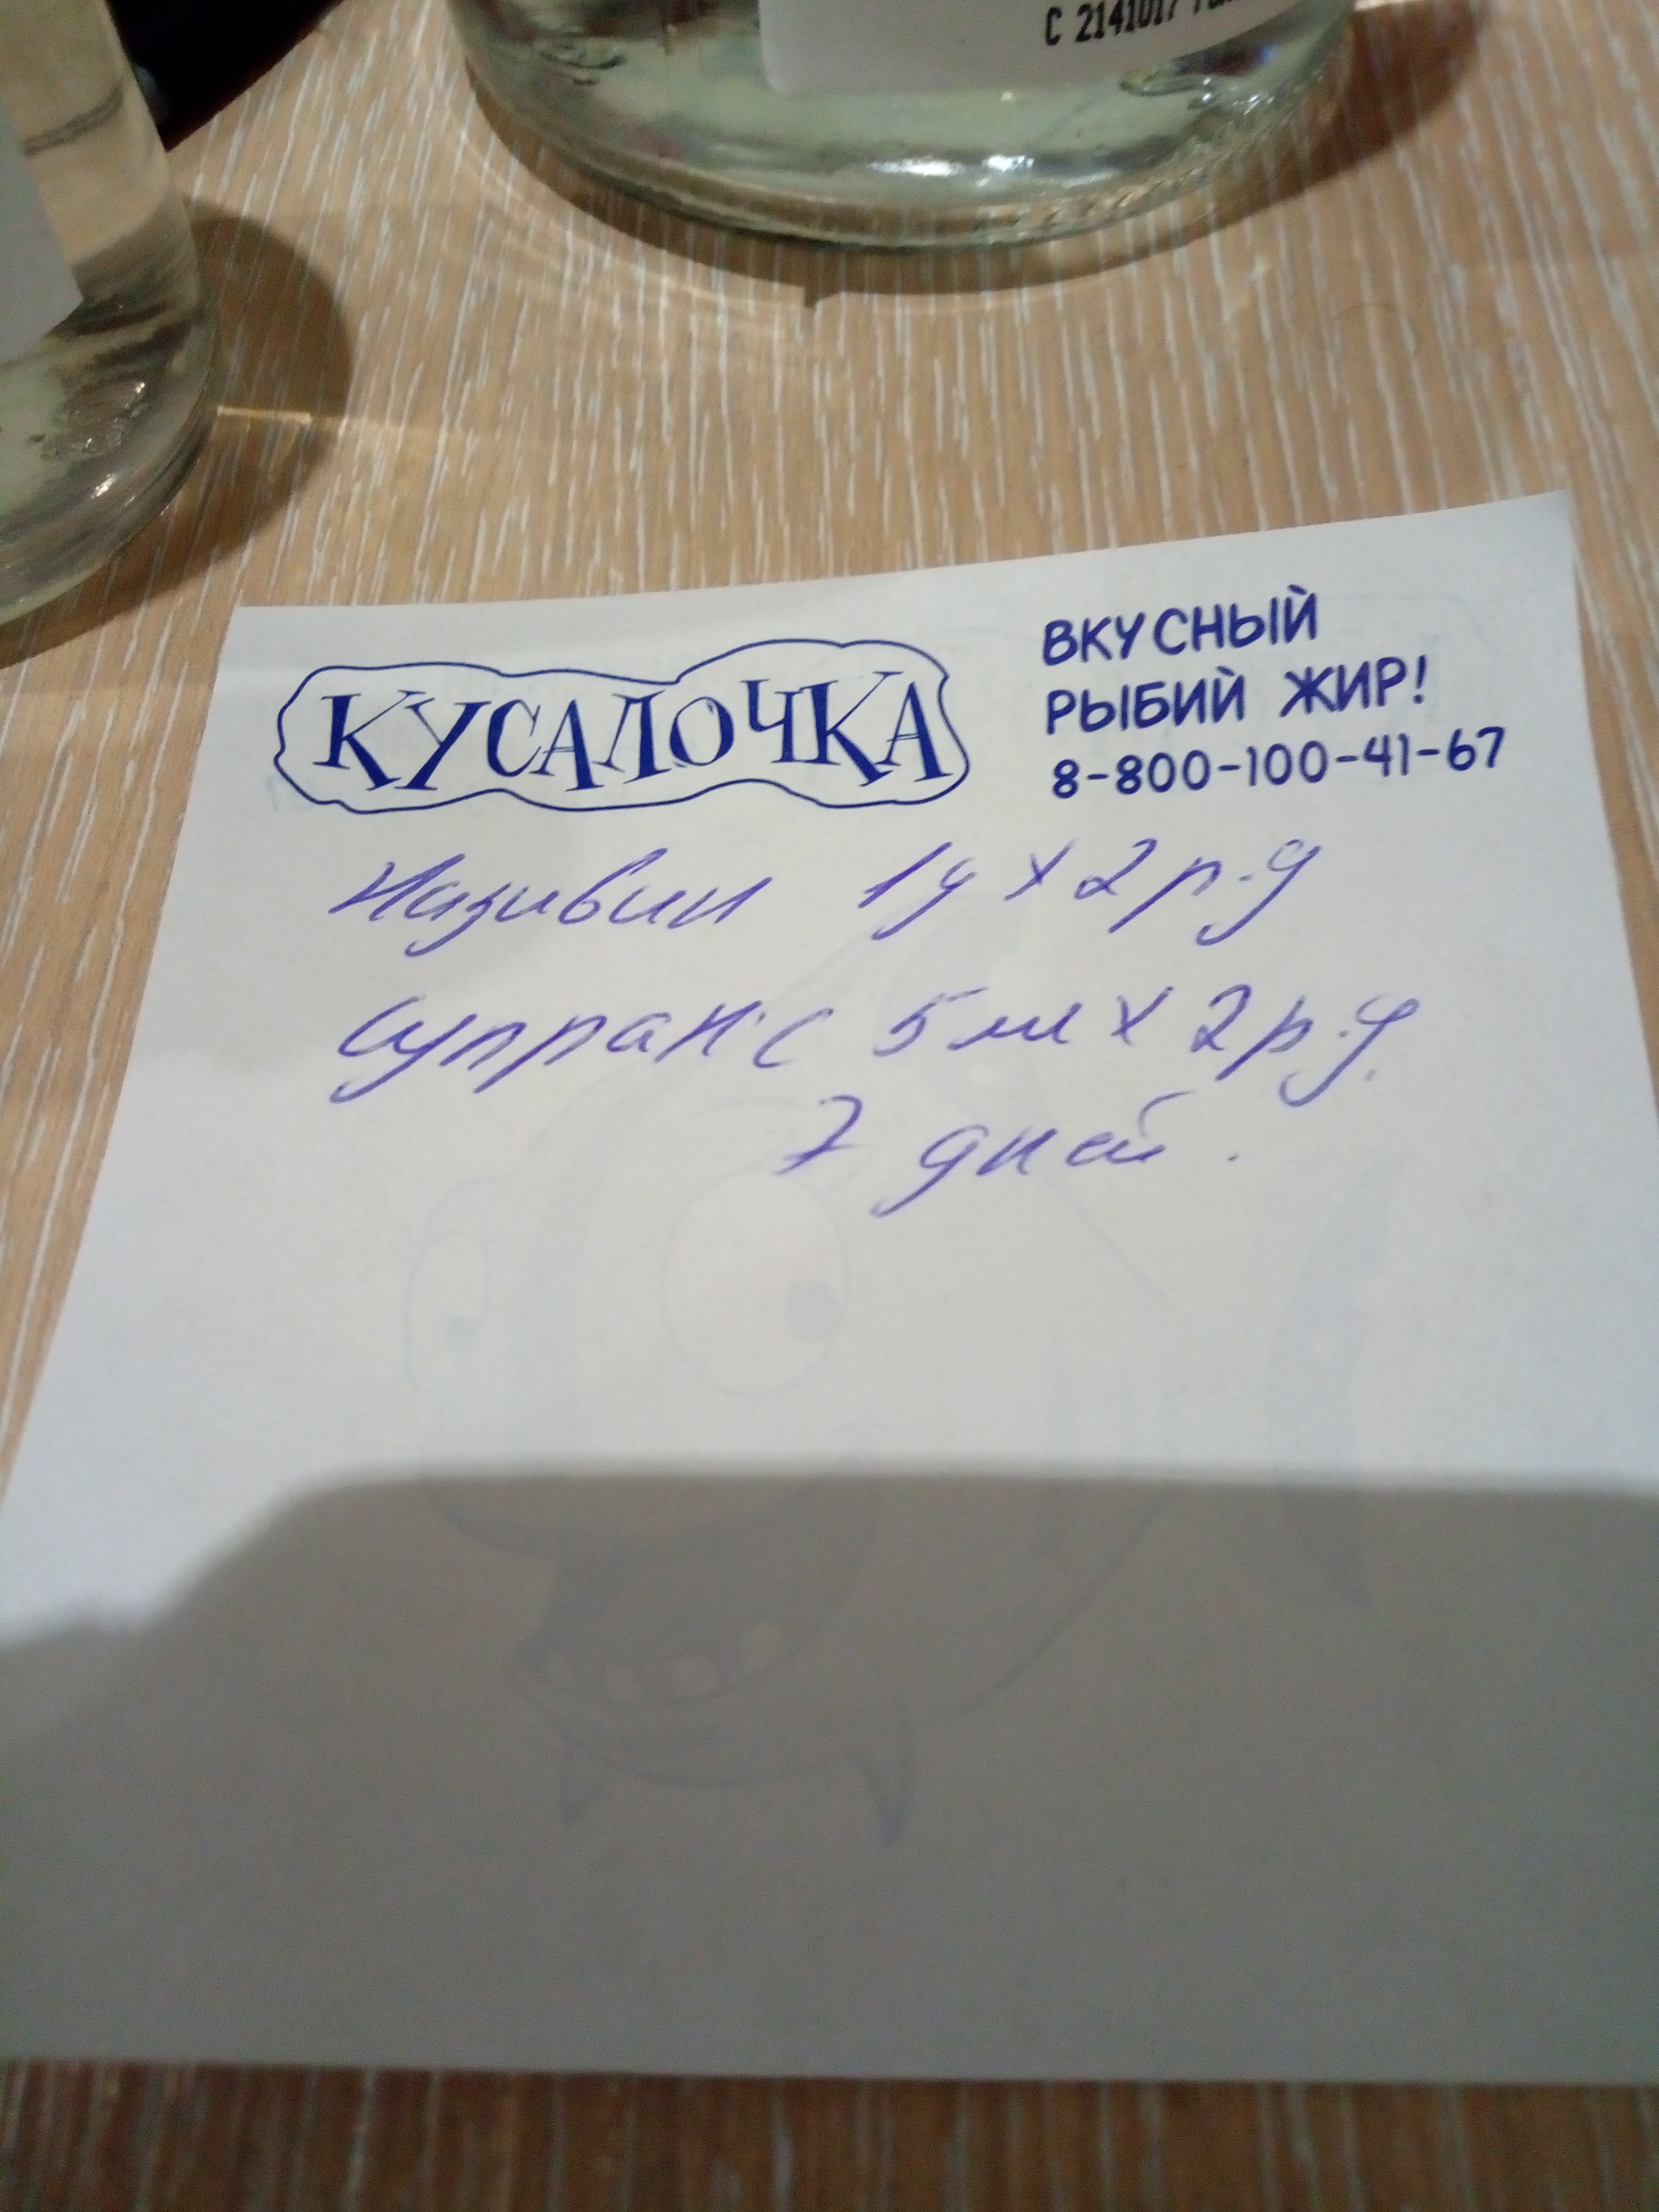 С 2141017
КУСАЛОЧКА
ВКУСНЫЙ
РЫБИЙ ЖИР!
8-800-100-41-67
Називин 1у х 2 р.д
Супракс 5 мл х 2 р.д.
7 дней.